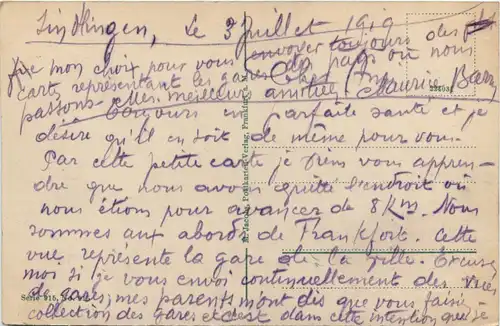 Sindlingen, le 3 Juillet 1919
fixe mon choix pour vous envoyer toujours des
cartes représentant les gares du pays où nous
passons. Mes meilleures amitiés. Maurice
Cher Ami
Toujours en parfaite santé et je
désire qu'il en soit de même pour vous.
Par cette petite carte je viens vous appren-
dre que nous avons quitté l'endroit où
nous étions pour avancer de 8 Km. Nous
sommes aux abords de Francfort. Cette
vue représente la gare de la ville. Excusez
moi si je vous envoi continuellement des vues
de gares, mes parents m'ont dis que vous faisiez
collection des gares et c'est dans cette intention que je
Serie 615
Postkarten-Verlag, Frankfurt